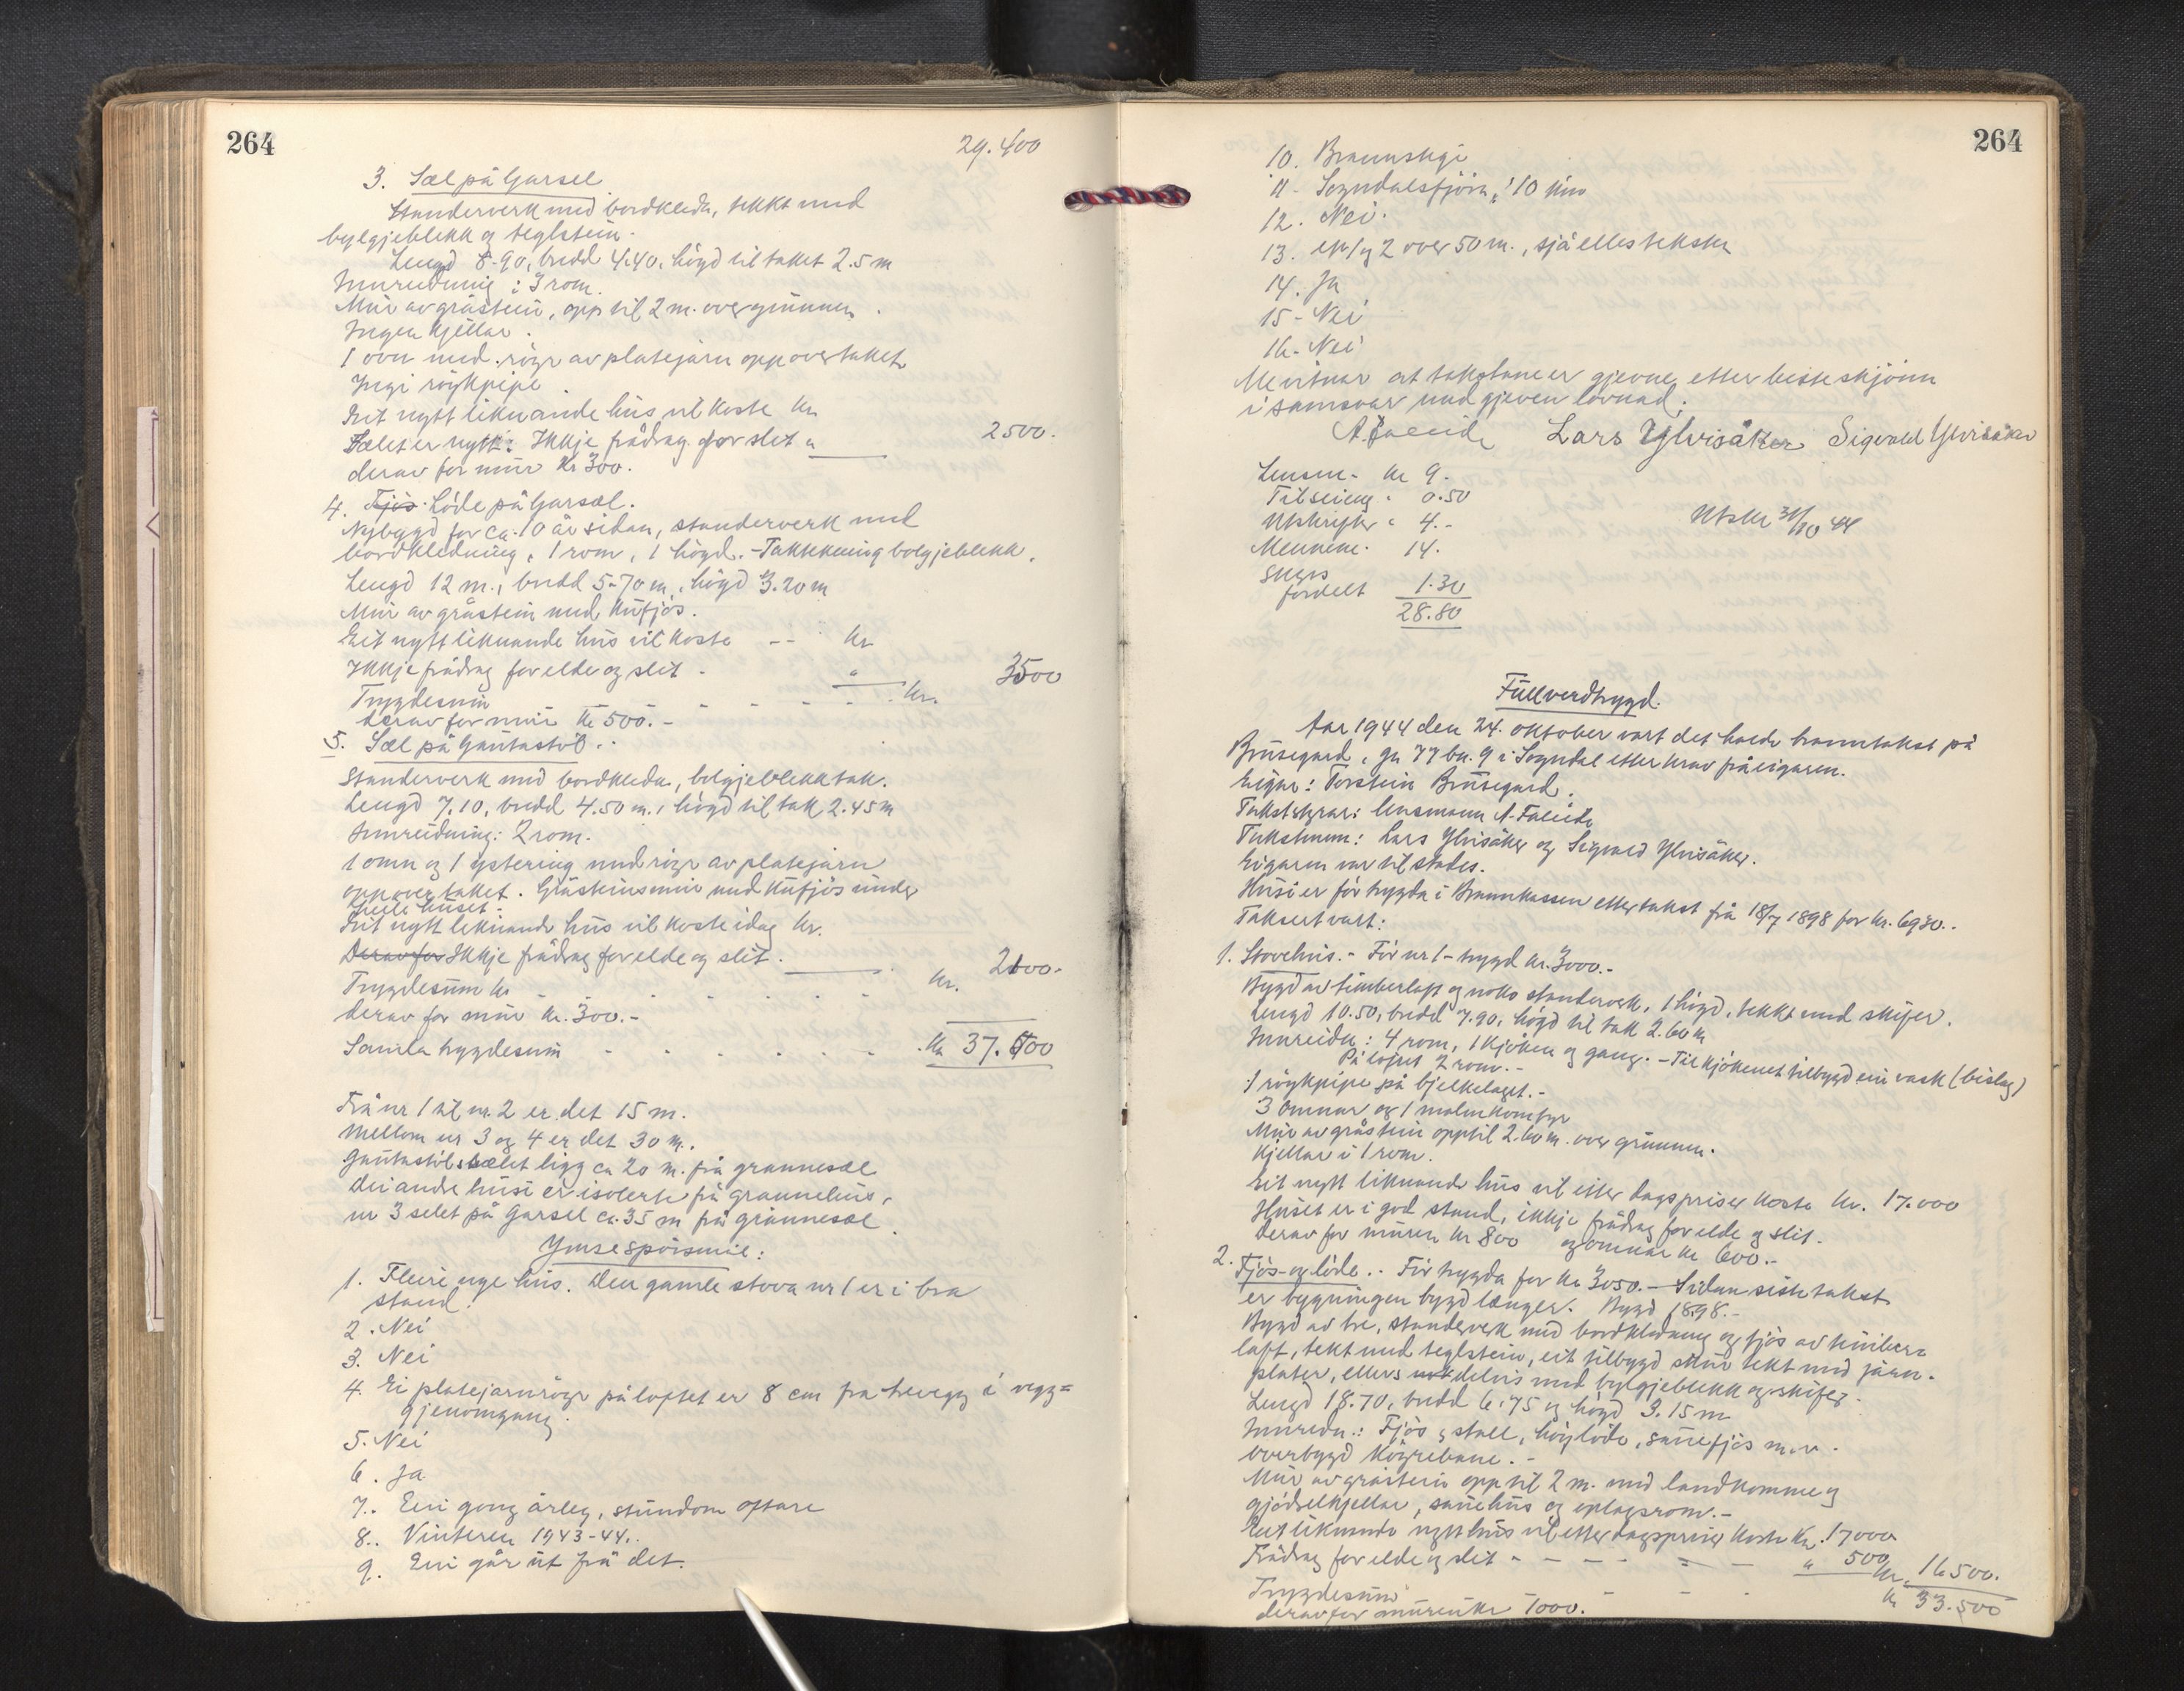 264
29.400
3. Sæl på Garsel
Standerverk med bordkledn, tekkt med
bylgjeblekk og teglstein.
Lengd 8.90, bredd 4.40, högd til taket 2.5 m
Innreidning: 3 rom.
Mur av gråstein, opp til 2 m. over grunnen.
Ingen kjellar.
1 ovn med rögr av platejarn opp over taket
Ingi röykpipe
Eit nytt liknande hus vil koste kr.
Sælet er nytt: Ikkje frådrag for slet " 2500.
derav for mur kr 300.
4. Fjös. Löde på Garsæl.
Nybyggd for ca. 10 år sidan, standerverk med
bordkledning, 1 rom, 1 högd. - Taktekning bolgjeblekk.
Lengd 12 m., bredd 5.70 m, högd 3.20 m
Mur av gråstein med kufjös.
Eit nytt liknande hus vil koste -- kr
Ikkje frådrag for elde og slit - "
Trygdesum - - - - - kr. 3500
derav for mur kr 500.-
5. Sæl på Gautastöl.
Standerverk med bordkledn, bolgjeblekktak.
Lengd 7.10, bredd 4.50 m., högd til tak 2.45 m
Innreidning: 2 rom.
1 omn og 1 ystering med rögr av platejarn
opp over taket. Gråsteinsmur med kufjös under
heile huset.
Eit nytt liknande hus vil koste idag kr.
Derav for Ikkje frådrag for elde og slit.
Trygdesum kr - - - - - kr. 2100.
derav for mur kr. 300.-
Samla trygdesum - - - - - - kr 37.500
Frå nr 1 til nr. 2 er det 15 m.
Mellom nr 3 og 4 er det 30 m.
Gautastölsælet ligg ca 20 m. frå grannesæl
Dei andre husi er isolerte frå grannehus,
nr 3 selet på Garsel ca. 35 m frå grannesæl.
Ymse spörsmål:
1. Fleire nye hus. Den gamle stova nr 1 er i bra
stand.
2. Nei
3. Nei
4. Ei platejarnrögr på loftet er 8 cm fra trevegg i vegg=
gjenomgang.
5. Nei
6. Ja
7. Ein gong årleg, stundom oftare
8. Vinteren 1943-44.
9. Ein går ut frå det.
264
10. Brannstigi
11. Sogndalsfjöra, 10 hus
12. Nei.
13. nr 1 og 2 over 50 m., sjå elles teksta
14. Ja
15. Nei
16. Nei
Me vitnar at takstane er gjevne etter beste skjönn
i samsvar med gjeven lovnad.
A. Faleide Lars Ylvisåker Sigvald Ylvisåker
Lensm. kr 9.
Tilseiing. 0.50
Utskrifter " 4.-
Mennene. 14.
Skyss
fordelt 1.30
28.80
Utskr 31/10 44
Fullverdtrygd.
Aar 1944 den 24. oktober vart det halde branntakst på
Brusegard, gn 77 bn. 9 i Sogndal etter krav frå eigaren.
Eigar: Torstein Brusegard.
Takststyrar: lensmann A. Faleide
Takstmenn: Lars Ylvisåker og Sigvald Ylvisåker.
Eigaren var til stades.
Husi er för trygda i Brannkassen etter takst frå 18/7 1898 for kr. 6930..
Taksert vart:
1. Stovehus. - För nr 1 - trygd kr. 3000.-
Bygd av timberlaft og noko standerverk, 1 högd, tekkt med skifer.
Lengd 10.50, bredd 7.90, högd til tak 2.60 m
Innreidn: 4 rom, 1 kjöken og gang. - Til kjökenet tilbygd ein vask (bislag)
På loftet 2 rom. -
1 röykpipe på bjelkelaget. -
3 omnar og 1 malmkomfyr
Mur av gråstein opptil 2.60 m. over grunnen.
Kjellar i 1 rom.
Eit nytt liknande hus vil etter dagsprisar koste kr. 17.000
Huset er i god stand, ikkje frådrag for elde og slit.
derav for muren kr 800 og omnar kr 600.-
2. Fjös- og löde. - För trygda for kr 3050. - Sidan siste takst
er bygningen bygd længer. Bygd 1898.-
Bygd av tre, standerverk med bordkledning og fjös av timber=
laft, tekt med teglstein, eit tilbygd skur tekt med jarn-
plater, ellers delvis med bylgjeblekk og skifer.
Lengd 18.70, bredd 6.75 og högd 3.15 m
Innredn.: Fjös, stall, höyløde, sauefjös m.v.
overbygd köyrebane. -
Mur av gråstein opp til 2 m. med landkomme og
gjödselkjellar, sauehus og oplagsrom. -
Eit liknande nytt hus vil etter dagsprisar koste kr. 17000
Frådrag for elde og slit - - - - " 500
Trygdesum - - - kr. 16500.
derav for muren kr 1000. kr 33.500